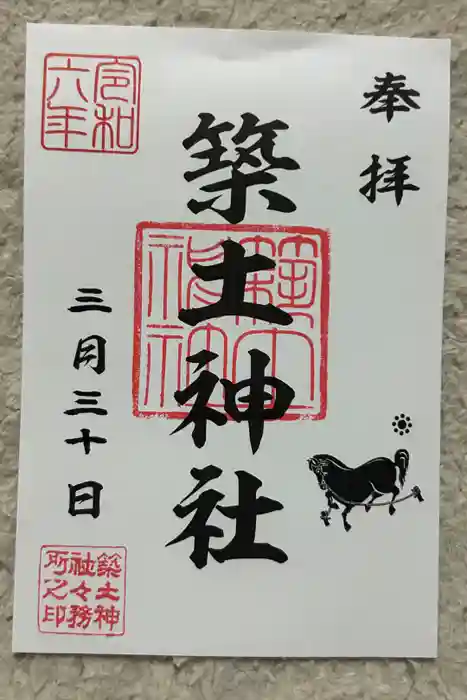 奉拝
築土神社
築土神社
令和六年
三月三十日
築土神社々務所之印